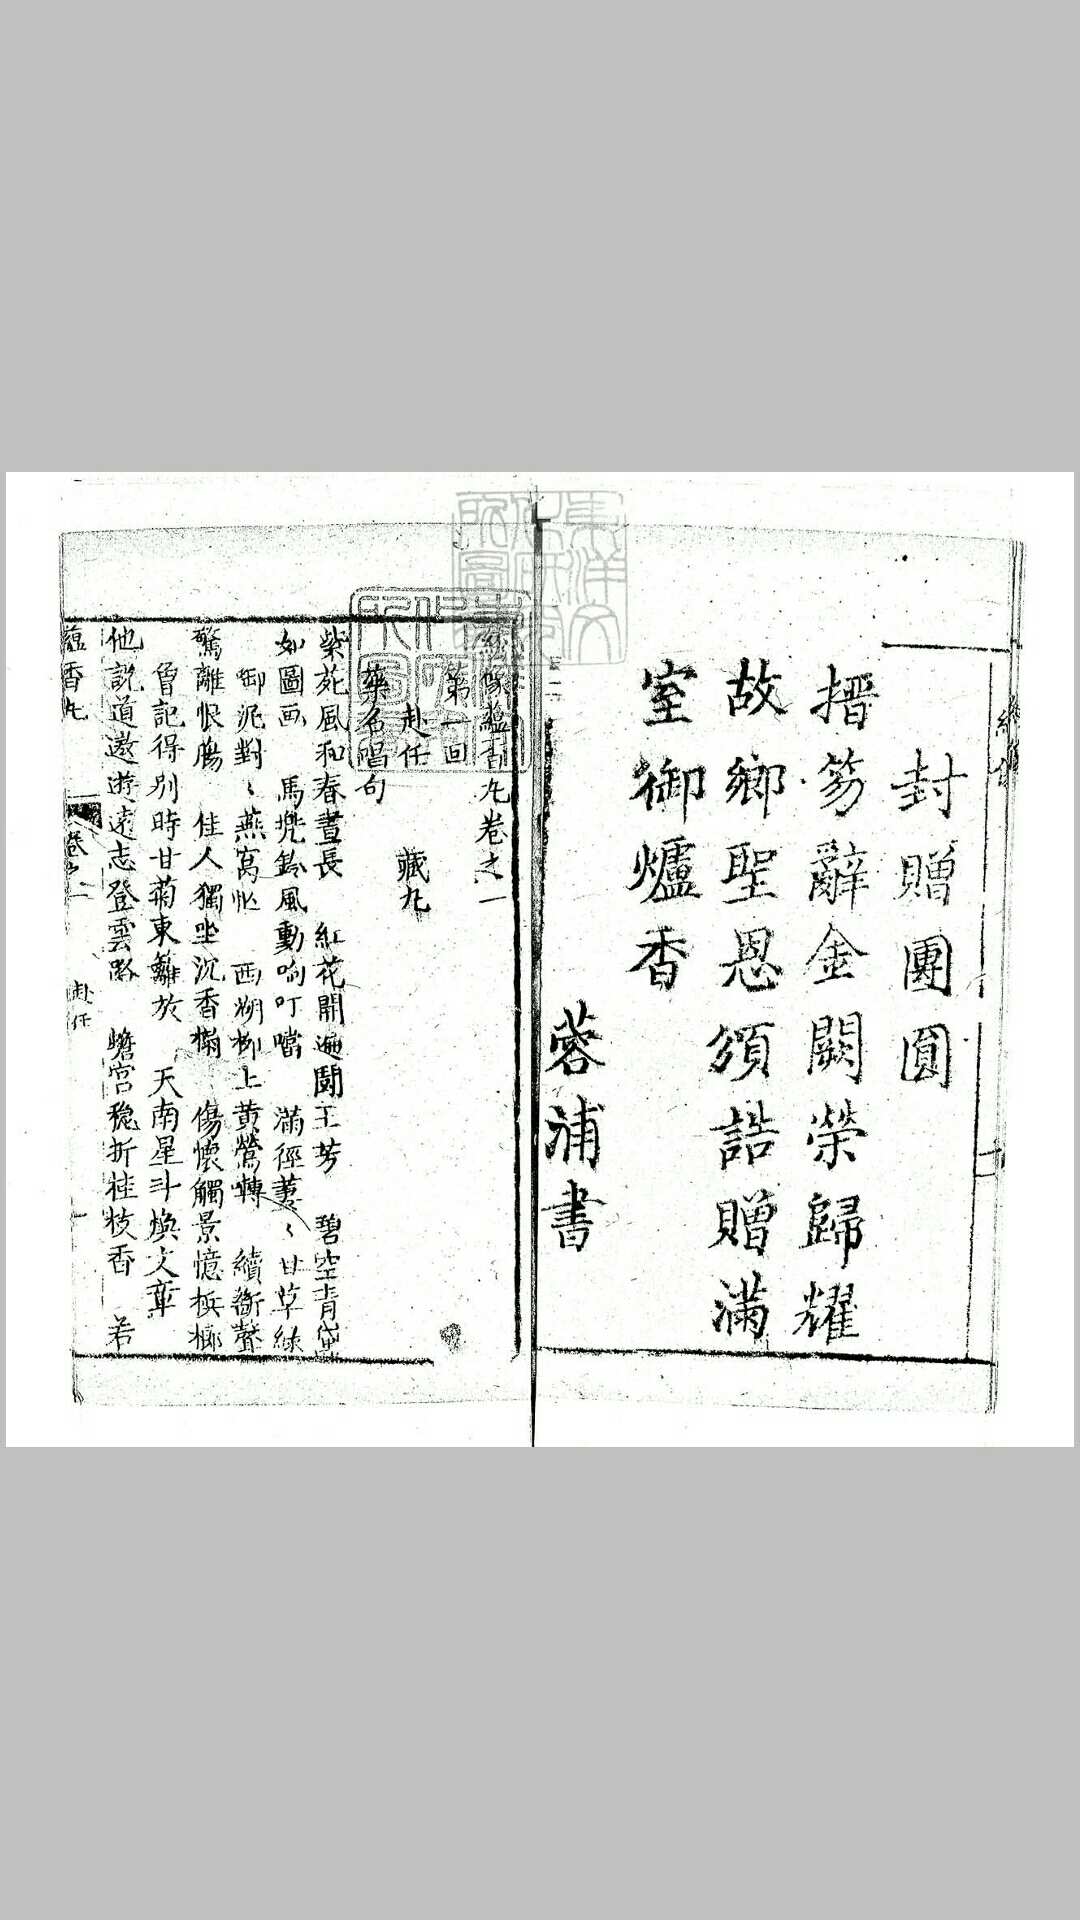 封贈團圓
搢笏辭金闕榮歸耀
故鄉聖恩頒誥贈滿
室御爐香
蓉浦書
繡像蘊香丸卷之一
第一回
赴任 藏丸
藥名唱句
紫苑風和春晝長 紅花開遍鬪王芳 碧空青黛
如圖画 馬兜鈴風動响叮噹 滿徑萋〻甘草綠
啣泥對〻燕窩忙 西湖柳上黄鶯轉 續斷聲
驚離恨膓 佳人獨坐沉香榻 傷懷觸景憶梹榔
曾記得别時甘菊東籬放 天南星斗煥文章
他説道遨遊遠志登雲路 蟾宫穏折桂枝香 若
蘊香丸 卷之一 赴任 一